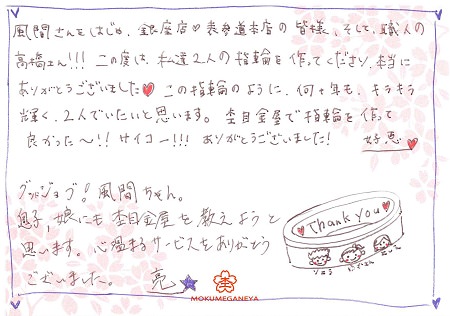 風間さんをはじめ、銀座店♡表参道本店の皆様、そして、職人の
高橋さん!!! この度は、私達2人の指輪を作ってくださり、本当に
ありがとうございました♥ この指輪のように、何十年も、キラキラ
輝く、2人でいたいと思います。杢目金屋で指輪を作って
良かった〜!! サイコー!!! ありがとうございました! 好恵♥
グッドジョブ! 風間ちゃん。
息子、娘にも杢目金屋を教えようと
思います。心温まるサービスをありがとう
ございました。 亮★
♥Thank you♥
りょう
MOKUMEGANEYA